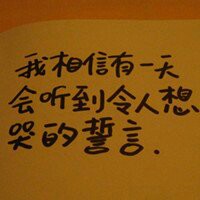 我相信有一天
会听到令人想
哭的誓言.